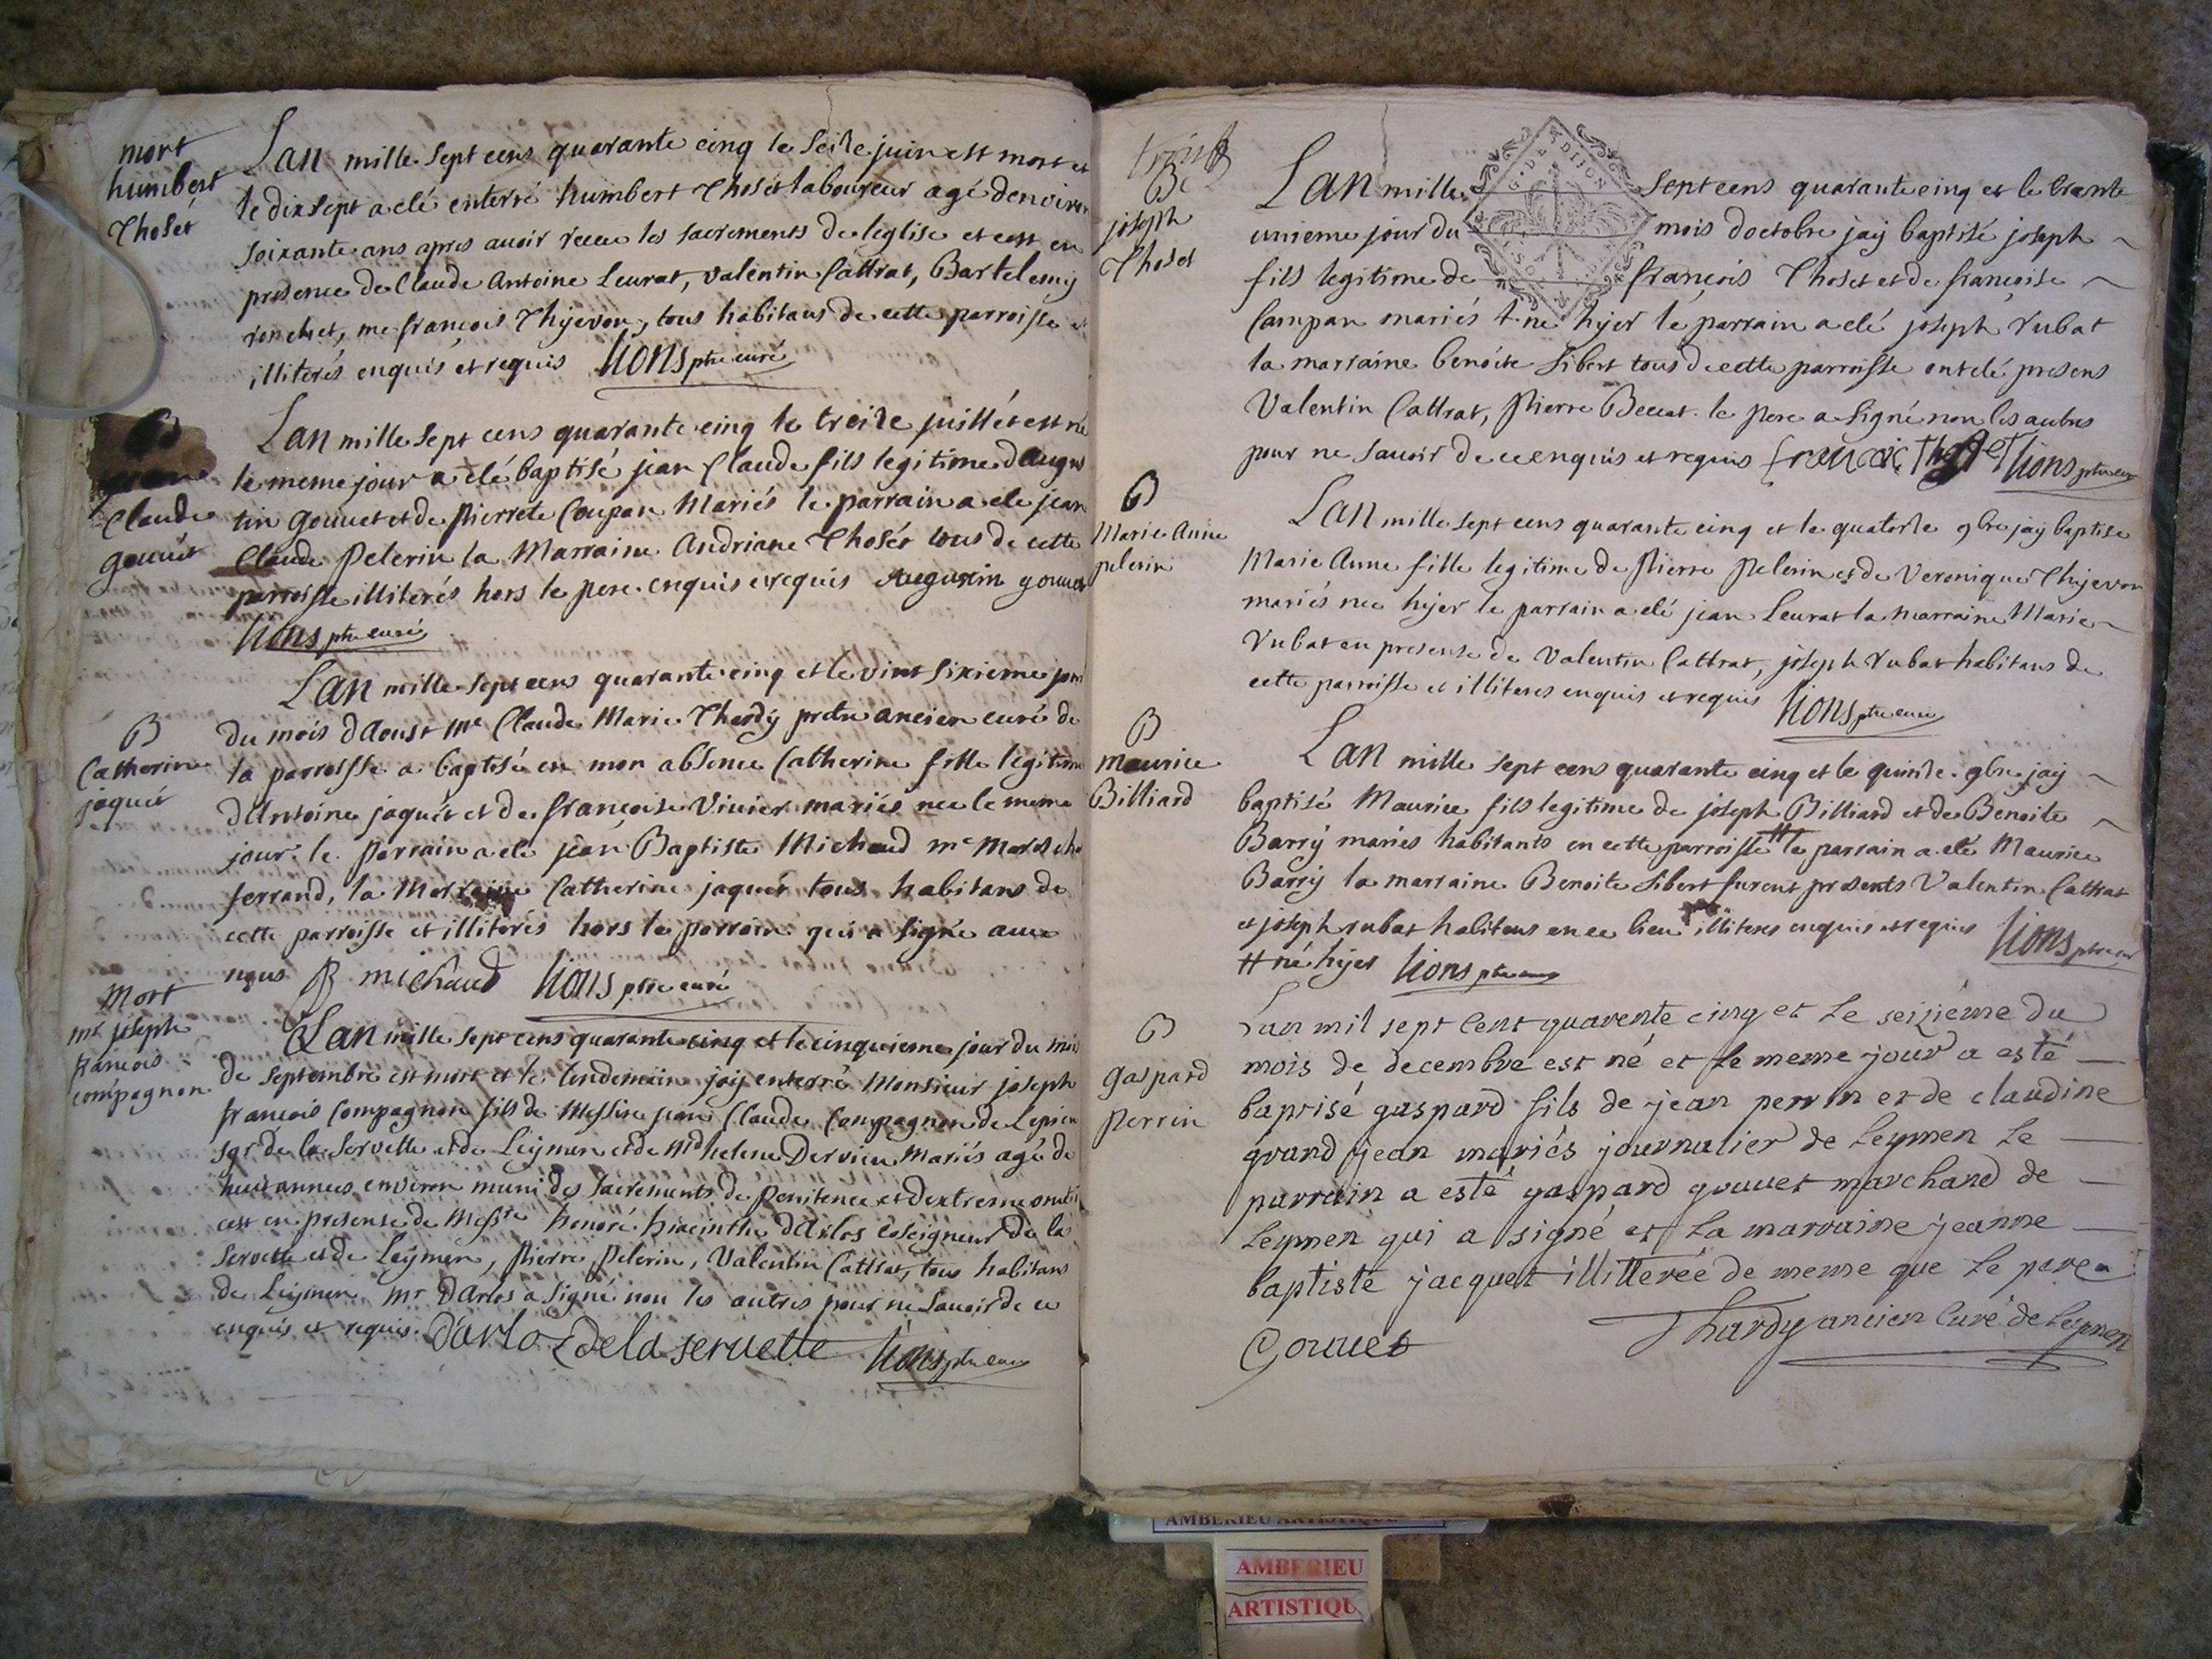 mort
humbert
Thoset
Lan mille sept cens quarante cinq le seize juin est mort et
le dix sept a eté enterré humbert Thoset laboureur agé denviron
soixante ans apres avoir receu les sacrements de leglise et cest en
presence de Claude Antoine Leurat, valentin Cattrat, Bartelemy
ronchet, me francois Thijevon, tous habitans de cette parroisse et
illiterés enquis et requis Lions ptre curé
B
Claude
gouuet
Lan mille sept cens quarante cinq le treize juillet est né
le meme jour a eté baptisé jean Claude fils legitime daugus
tin gouuet et de pierrete Coupan mariés le parrain a ete jean
Claude pelerin la Marraine Andriane Thoset tous de cette
parroisse illiterés hors le pere enquis et requis Augustin gouuet
Lions ptre curé
B
Catherine
jaquet
Lan mille sept cens quarante cinq et le vint sixieme jour
du mois daoust mre Claude Marie Thardy pretre ancien curé de
la parroisse a baptisé en mon absence Catherine fille legitime
dAntoine jaquet et de francoise Vivier mariés nee le meme
jour le parrain a ete jean Baptiste Michaud me Mares cha
ferrand, la Marraine Catherine jaquet tous habitans de
cette parroisse et illiterés hors le parrain qui a signé avec
nous JB michaud Lions ptre curé
Mort
mr joseph
francois
compagnon
Lan mille sept cens quarante cinq et le cinquieme jour du mois
de septembre est mort et le lendemain jay enterré Monsieur joseph
francois Compagnon fils de Messire jean Claude Compagnon de Lepieu
sgr de la Servette et de Leymen et de Md helene Dervieu Mariés agé de
huit annees environ muni des sacrements de penitence et dextreme onction
cest en presense de Messre honoré hiacinthe dArlos coseigneur de la
servette et de Leymen, pierre pelerin, Valentin Cattrat, tous habitans
de Leymen mr dArlos a signé non les autres pour ne savoir de ce
enquis et requis. Darlos de la seruette Lions ptre curé
B
joseph
Thoset
Lan mille sept cens quarante cinq et le trente
G. DE DIJON
unieme jour du mois doctobre jay baptisé joseph
fils legitime de françois Thoset et de françoise
Campan mariés né hyer le parrain a eté joseph rubat
la marraine benoite Sibert tous de cette parroisse ont eté presens
Valentin Cattrat, pierre Beccat. le pere a signé non les autres
pour ne savoir de ce enquis et requis francois Thoset Lions ptre curé
B
Marie Anne
pelerin
Lan mille sept cens quarante cinq et le quatorze 9bre jay baptisé
Marie Anne fille legitime de pierre pelerin et de Veronique Thijevon
mariés nee hyer le parrain a eté jean Leurat la marraine Marie
rubat en presense de Valentin Cattrat, joseph rubat habitans de
cette parroisse et illiteres enquis et requis Lions ptre curé
B
maurice
Billiard
Lan mille sept cens quarante cinq et le quinze 9bre jay
baptisé Maurice fils legitime de joseph Billiard et de Benoite
Barry mariés habitants en cette parroisse # le parrain a eté Maurice
Barry la marraine Benoite Sibert furent presents Valentin Cattrat
et joseph rubat habitans en ce lieu illiteres enquis et requis Lions ptre curé
# né hyer Lions ptre curé
B
gaspard
perrin
Lan mil sept cent quarente cinq et le seiziéme du
mois de decembre est né et le meme jour a esté
baptisé gaspard fils de jean perrin et de claudine
grand jean mariés journalier de leymen le
parrain a esté gaspard gouuet marchand de
leymen qui a signé et la marraine jeanne
baptiste jacquet illitterée de meme que le pere
Gouuet Thardy ancien curé de leymen
AMBERIEU ARTISTIQUE
AMBERIEU
ARTISTIQU